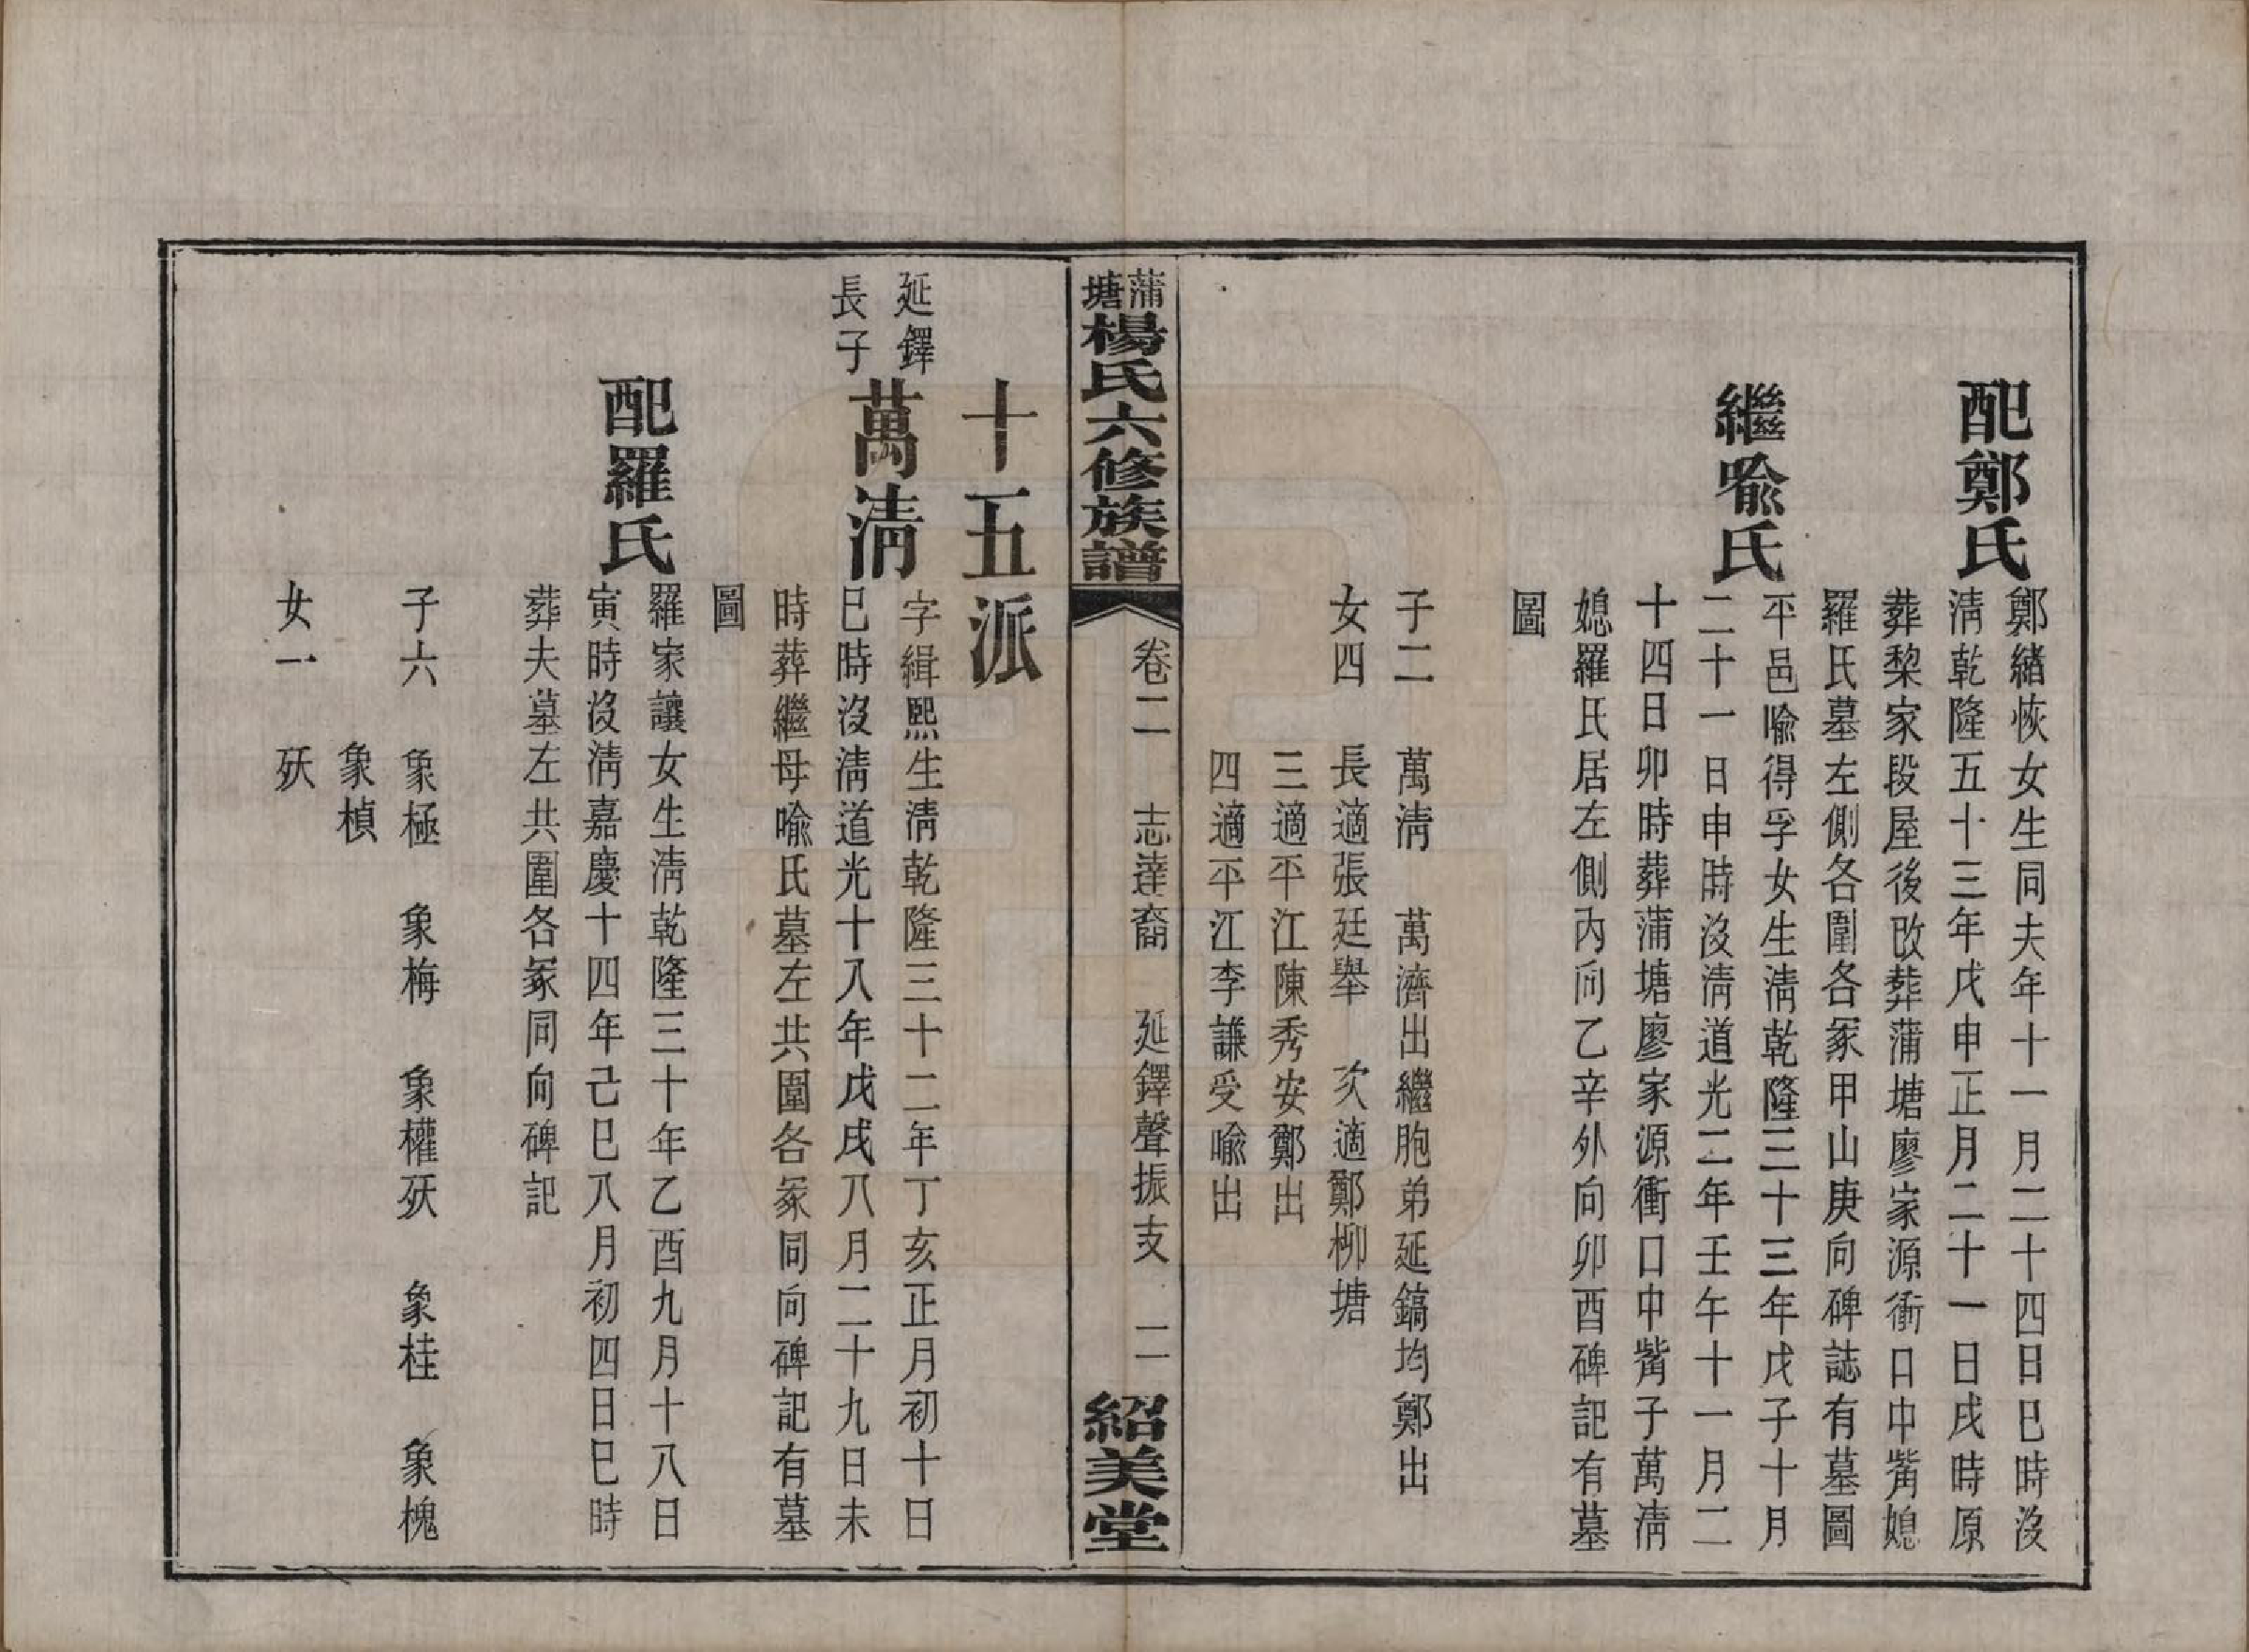 配鄭氏
鄭緒恢女生同夫年十一月二十四日巳時沒
淸乾隆五十三年戊申正月二十一日戌時原
葬棃家段屋後改葬蒲塘廖家源衝口中觜媳
羅氏墓左側各圍各冢甲山庚向碑誌有墓圖
繼喩氏
平邑喩得孚女生淸乾隆三十三年戊子十月
二十一日申時沒淸道光二年壬午十一月二
十四日卯時葬蒲塘廖家源衝口中觜子萬淸
媳羅氏居左側內向乙辛外向卯酉碑記有墓
圖
子二 萬淸 萬濟出繼胞弟延鎬均鄭出
女四 長適張廷舉 次適鄭柳塘
三適平江陳秀安鄭出
四適平江李謙受喩出
蒲塘楊氏六修族譜 卷二 志達裔 延鐸聲振支 二 紹美堂
十五派
延鐸
長子
萬淸
字緝熙生淸乾隆三十二年丁亥正月初十日
巳時沒淸道光十八年戊戌八月二十九日未
時葬繼母喩氏墓左共圍各冢同向碑記有墓
圖
配羅氏
羅家讓女生淸乾隆三十年乙酉九月十八日
寅時沒淸嘉慶十四年己巳八月初四日巳時
葬夫墓左共圍各冢同向碑記
子六 象極 象梅 象權殀 象桂 象槐
象楨
女一 殀